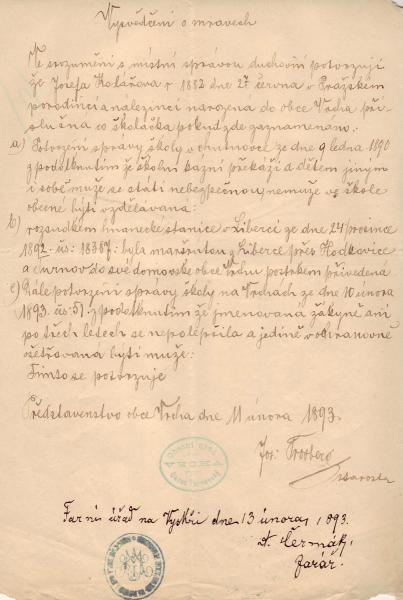 Vysvědčení o mravech
Ve srozumění s místní správou duchovní potvrzují
že Josefa Kolářova r 1882 dne 27 června v Pražském
porodinci a nálezinci narozena do obce Vrcha při
slušná co školačka pokud zde zaznamenáno:
a) Potvrzení správy školy v ze dne 9 ledna 1890
z podotknutím že školní kázni překáží a dětem jiným
i sobě může se státi nebezpečnou, nemůže ve škole
obecné býti vzdělávána:
b) rozsudkem stanice v Liberci ze dne 24 prosince
1892 čís: 18367: byla maršrutou z Liberce přes Hodkovice
a Turnov do své domovské obce Vrchu postrkem přivedená
c) Dále potvrzení správy školy na Vrchách ze dne 10 února
1893 čís: 51. z podotknutím že jmenovaná žákyně ani
po třech letech se nepolepšila a jedině v ochranovně
ošetřovaná býti může:
Tímto se potvrzuje
Představenstvo obce Vrcha dne 11 února 1893.
Jos:
starosta
Obecní úřad
VRCHA
Farní úřad na Vyskři dne 13 února 1893.
A. Čermák,
farář.